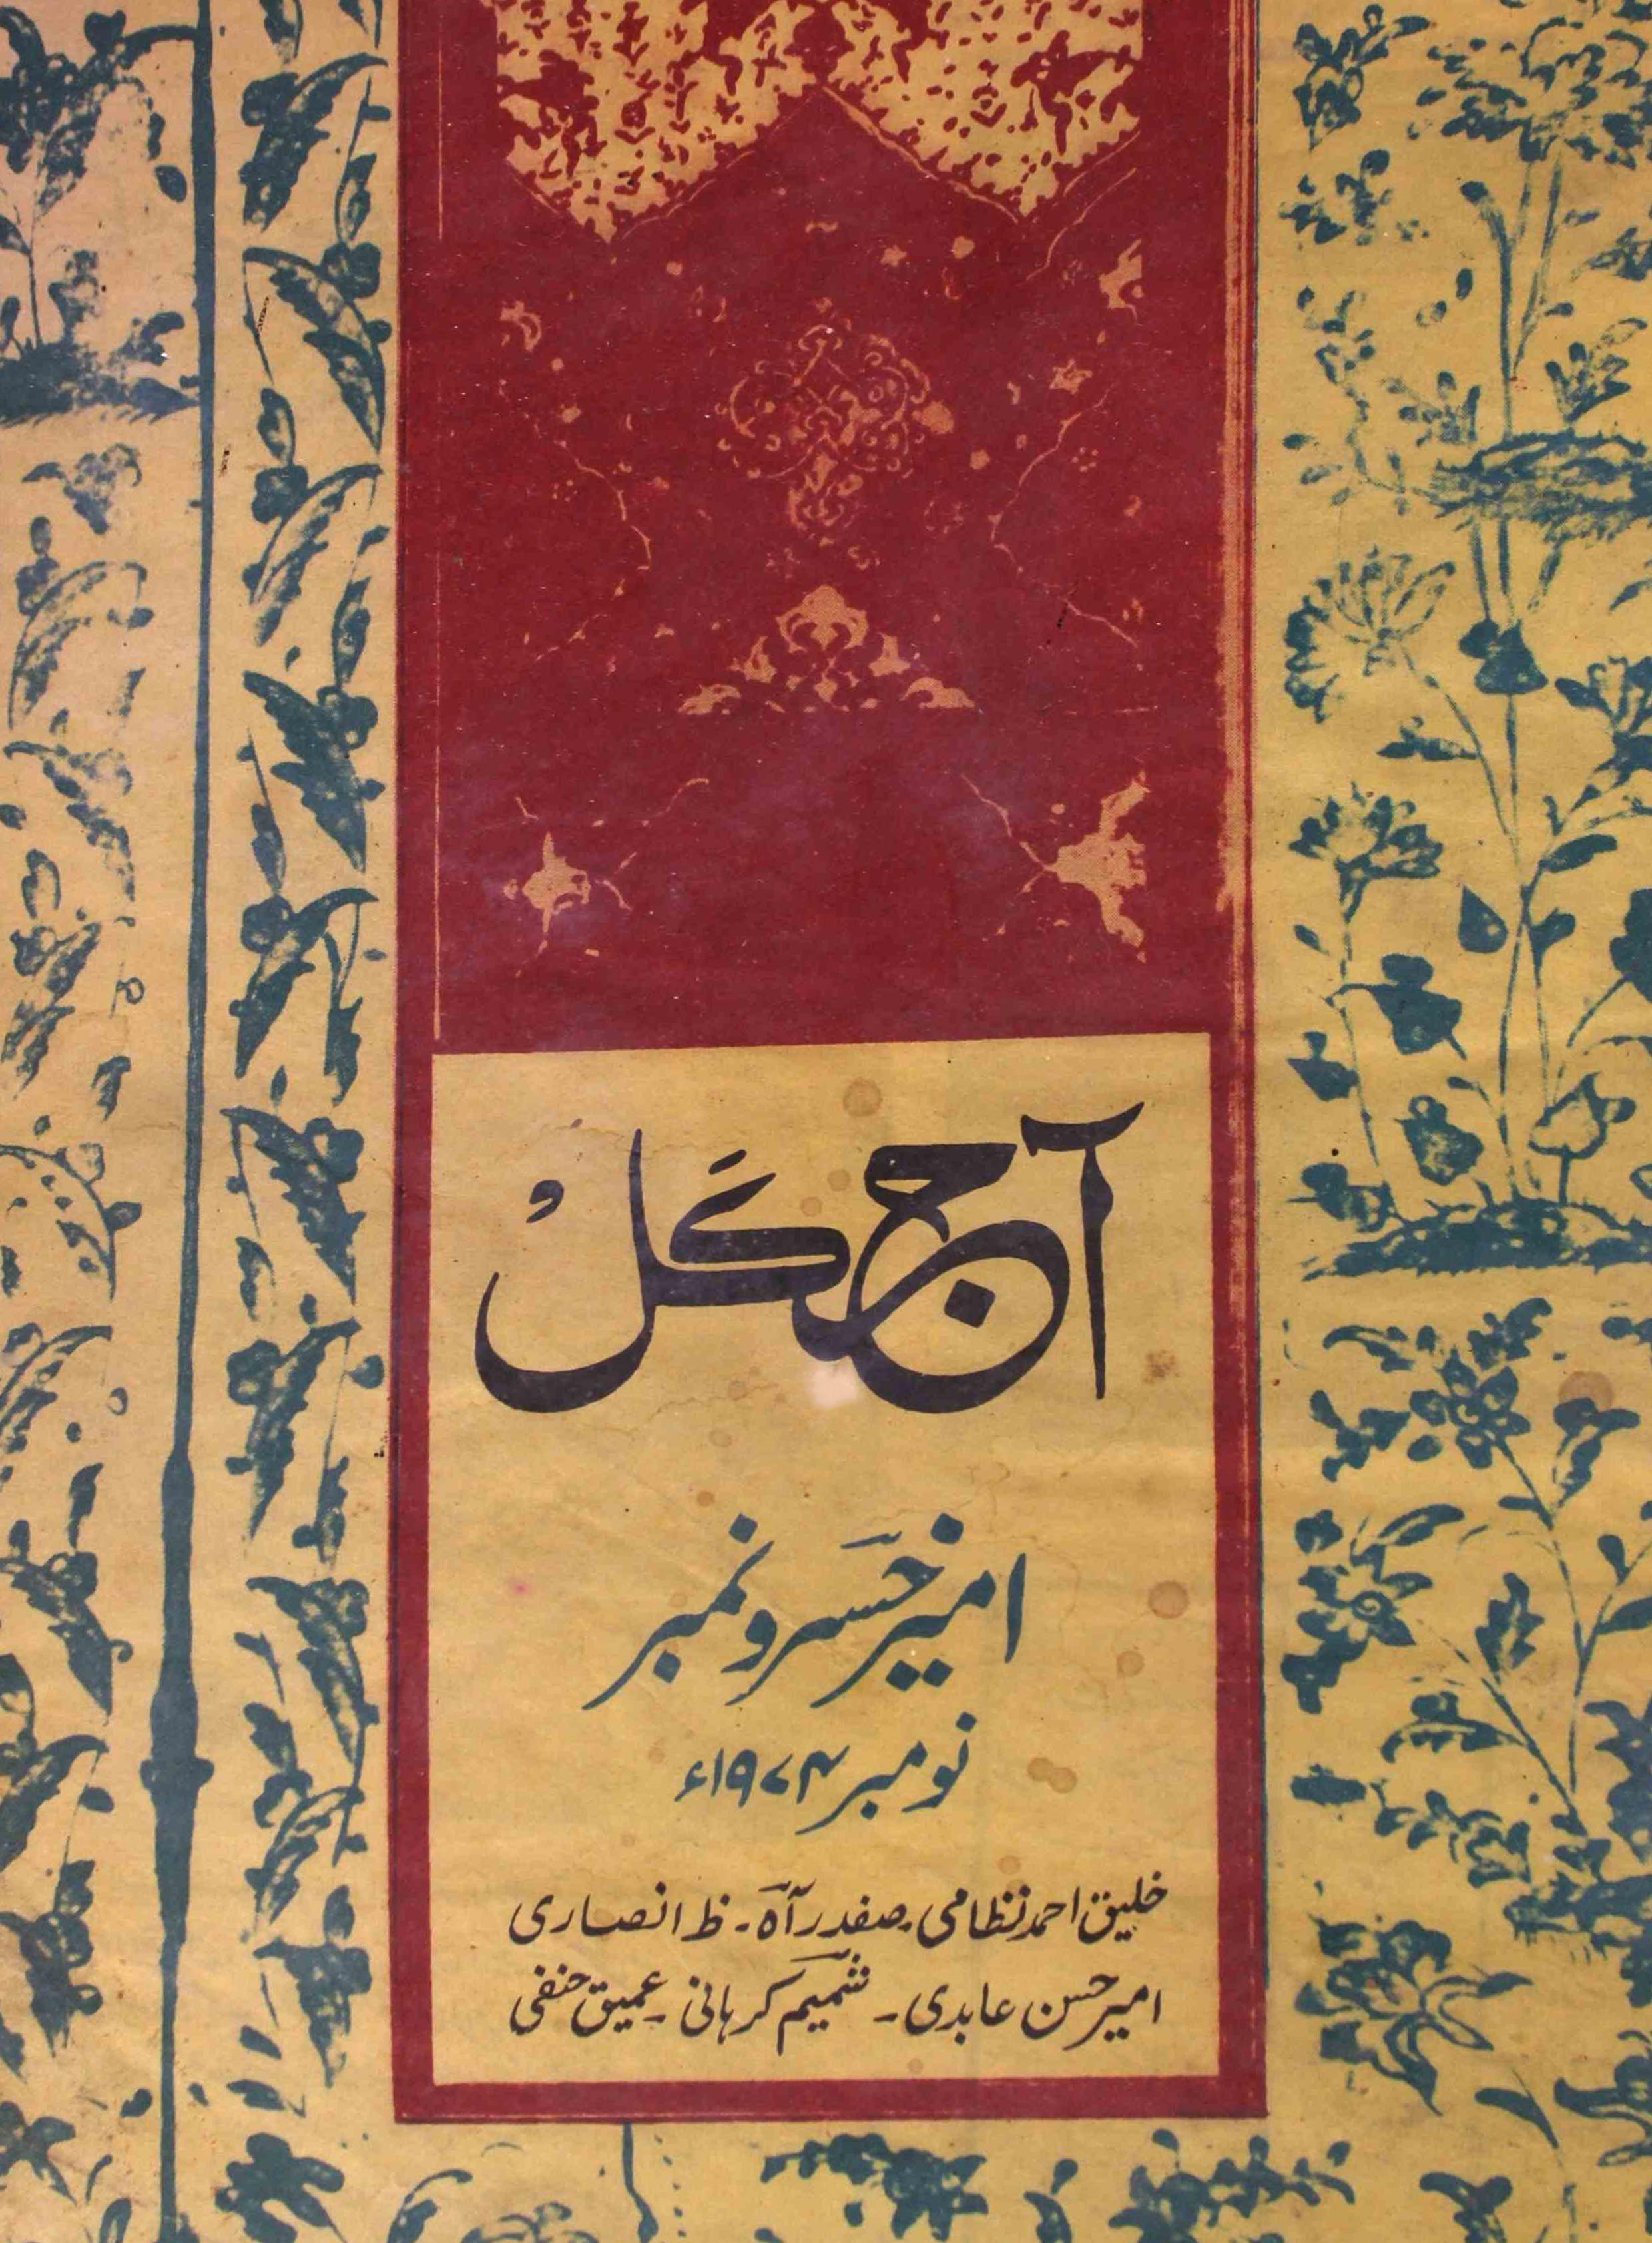 آج کل
امیر خسرو نمبر
نومبر ۱۹۷۴ء
خلیق احمد نظامی۔ صفدر آہ۔ ظ انصاری
امیر حسن عابدی۔ شمیم کرہانی۔ عمیق حنفی